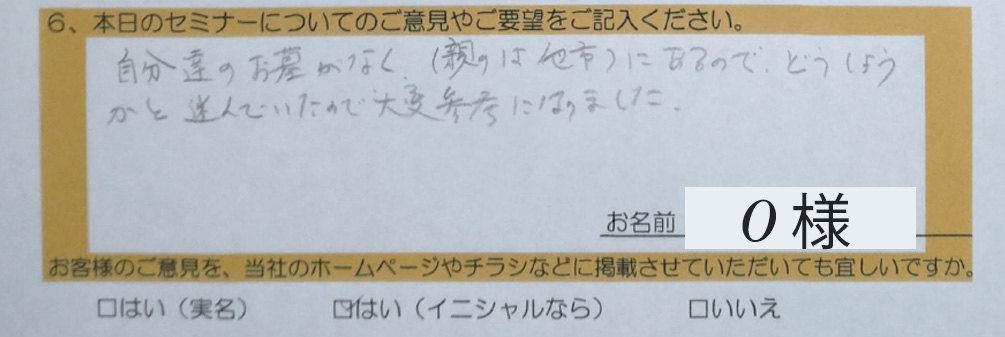 6、本日のセミナーについてのご意見やご要望をご記入ください。
自分達のお墓がなく、(親のは他市)にあるので、どうしよう
かと迷んでいたので大変参考になりました。
お名前 O様
お客様のご意見を、当社のホームページやチラシなどに掲載させていただいても宜しいですか。
□はい(実名) ☑はい(イニシャルなら) □いいえ